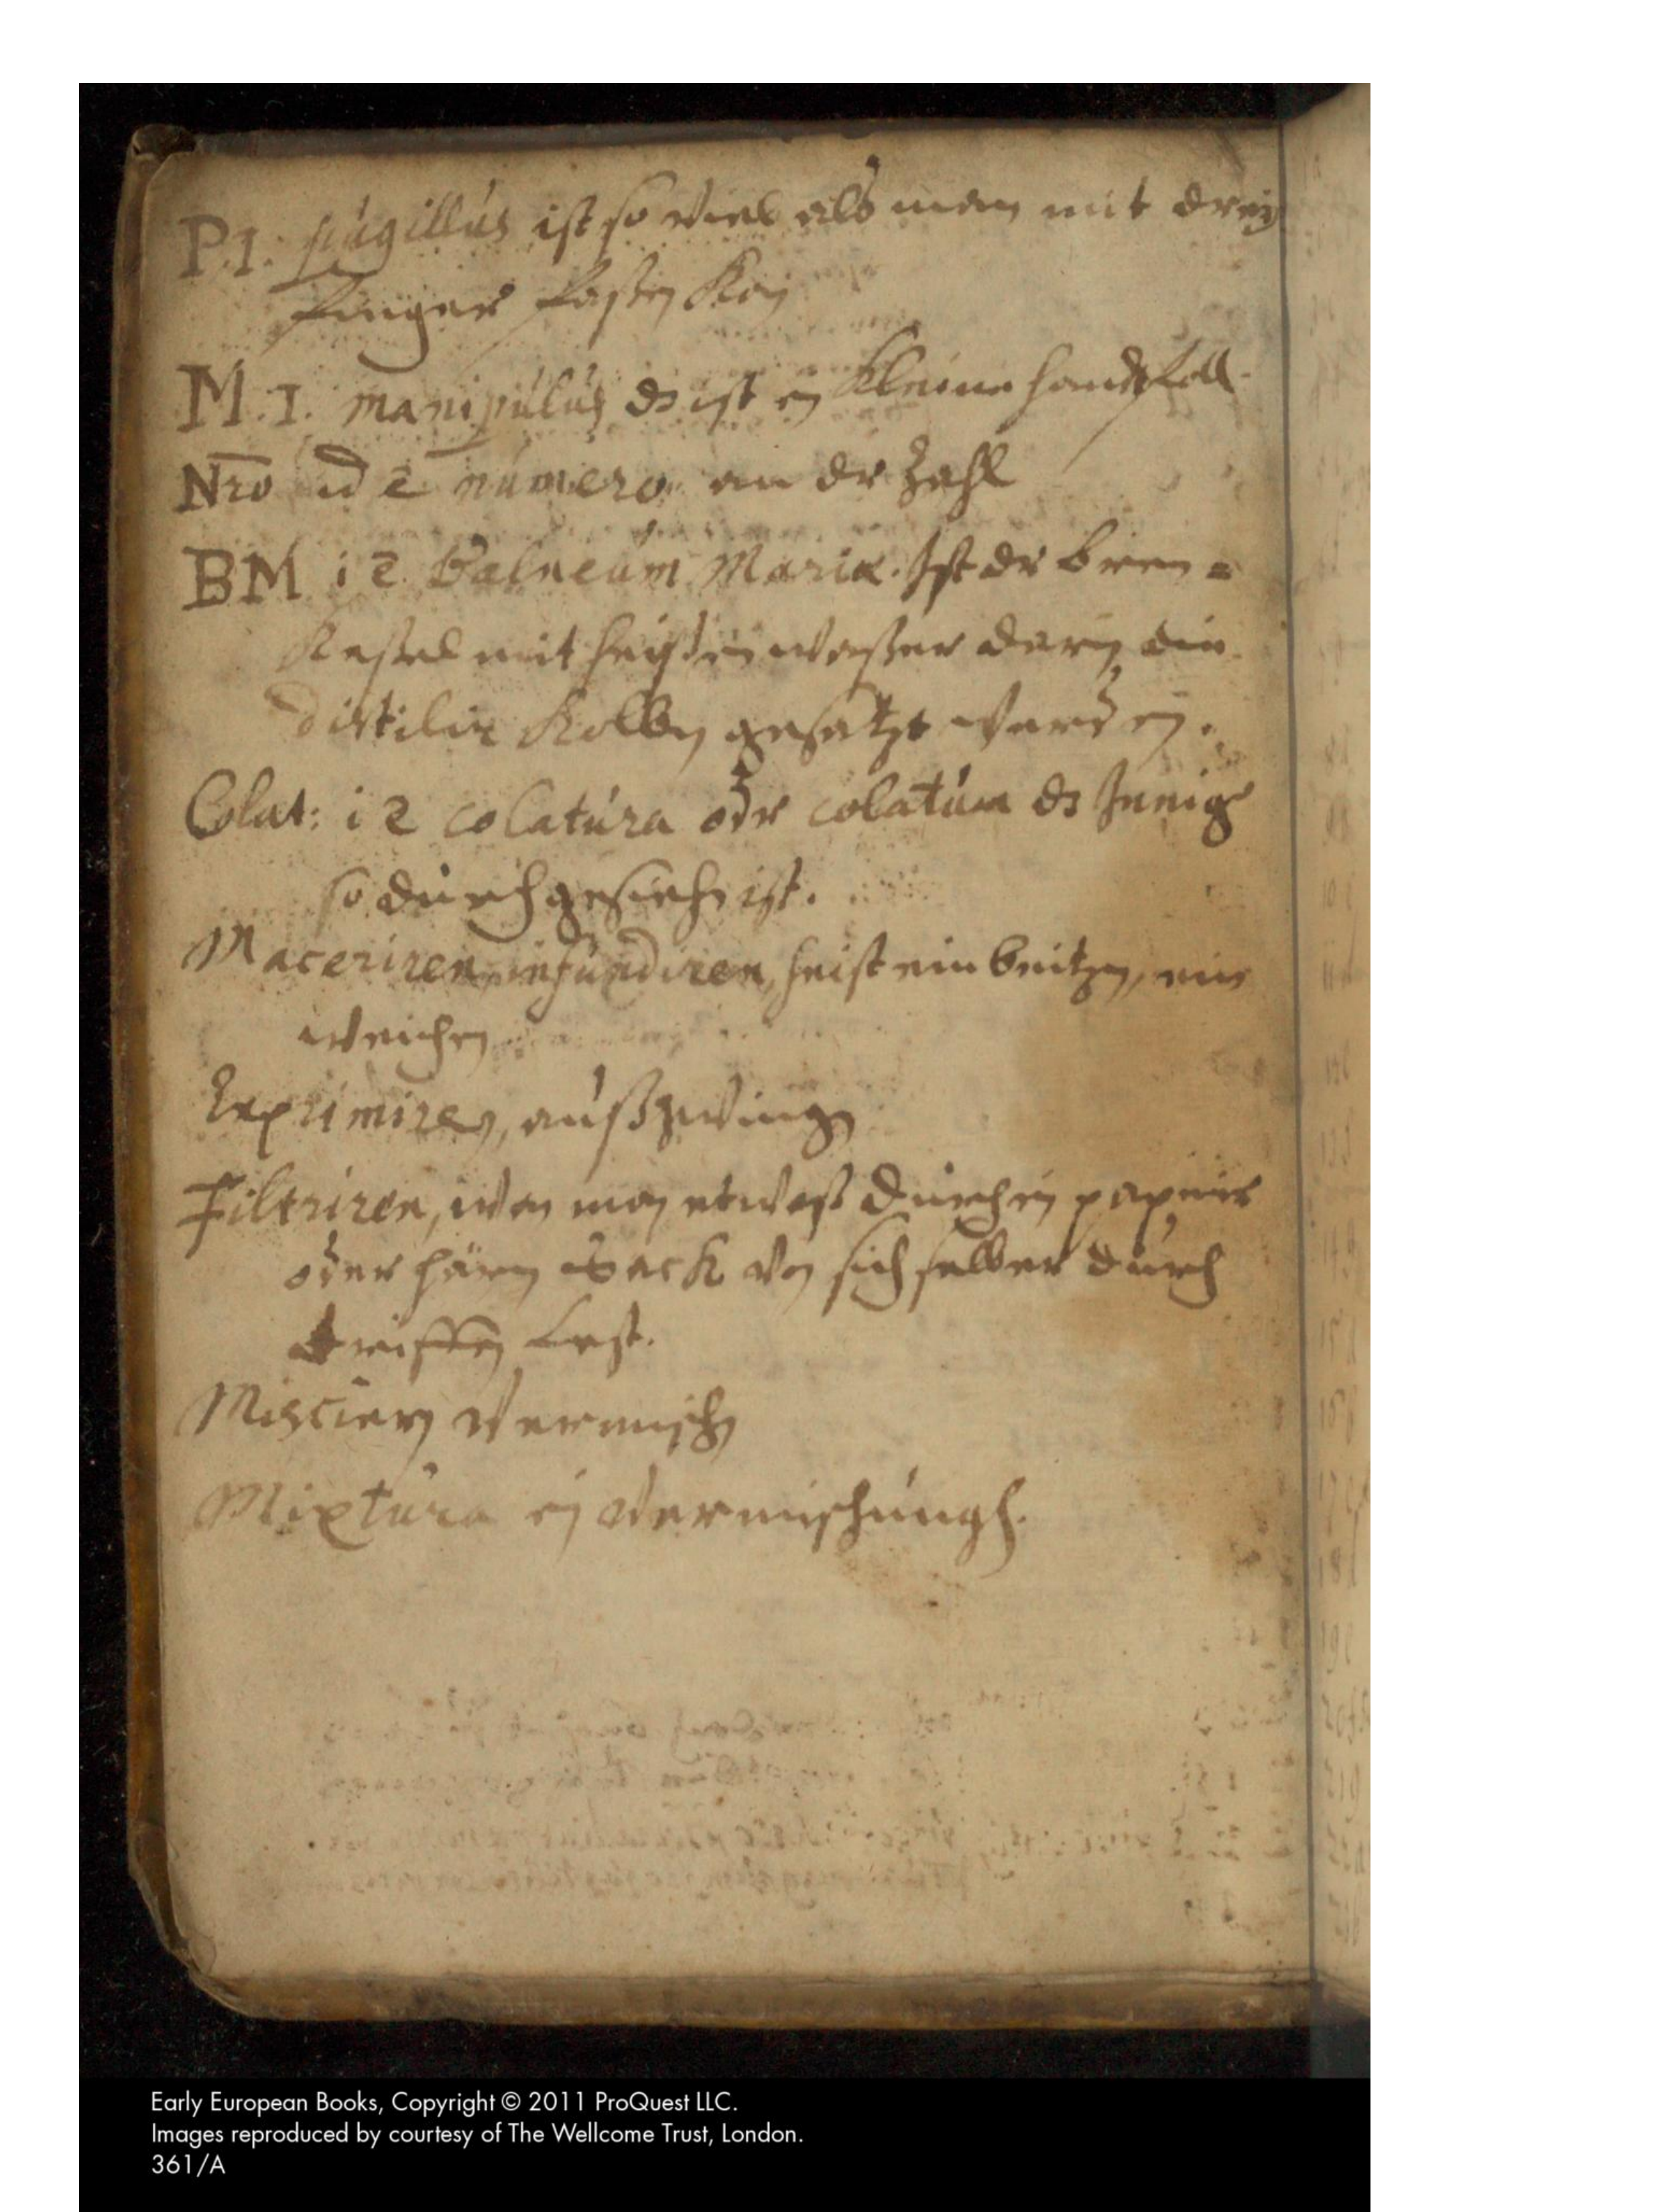 P.1. pugillus ist so viel als man mit dreÿ
finger fassen kan
M.1. manipulus ds ist ein kleine handtfoll
Nro id ē numero an der Zahl
BM i ē Balneum Mariæ. Ist der bren=
Kessel mit heissen wasser darin ein
distilir Kolben gesetzt werden.
Colat: i ē colatura oder colatum ds Jenige
so durch gesiehen ist.
Maceriren, infundiren, heist ein beitzen, ein
weichen
Exprimiren, außzwingen
Filtriren, wan man etwaß durch ein papeir
oder hären Sack von sich selber durch
treiffen lest.
Miscieren vermischen
Mixtura ein vermischungh.
Early European Books, Copyright © 2011 ProQuest LLC.
Images reproduced by courtesy of The Wellcome Trust, London.
361/A